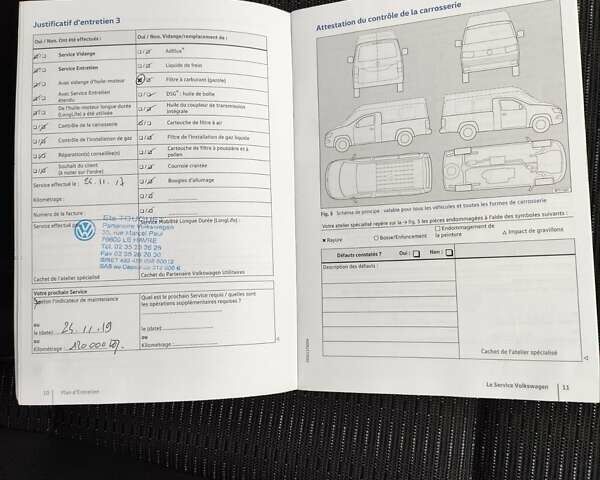 Justificatif d'entretien 3
Oui / Non. Ont été effectués :
Oui / Non. Vidange/remplacement de :
Service Vidange
AdBlue®
Service Entretien
Liquide de frein
Avec vidange d'huile-moteur
Filtre à carburant (gazole)
Avec Service Entretien étendu
DSG® : huile de boîte
De l'huile-moteur longue durée (LongLife) a été utilisée
Huile du coupleur de transmission intégrale
Contrôle de la carrosserie
Cartouche de filtre à air
Contrôle de l'installation de gaz
Filtre de l'installation de gaz liquide
Réparation(s) conseillée(s)
Cartouche de filtre à poussière et à pollen
Souhait du client (à noter sur l'ordre)
Courroie crantée
Service effectué le : 24.11.17
Bougies d'allumage
Kilométrage :
Numéro de la facture :
Service effectué par :
Service Mobilité Longue Durée (LongLife) :
Partenaire Volkswagen
35, rue Marcel Paul
76600 LE HAVRE
Tél. 02 35 26 36 26
Cachet de l'atelier spécialisé
Cachet du Partenaire Volkswagen Utilitaires
Votre prochain Service
Selon l'indicateur de maintenance
Quel est le prochain Service requis / quelles sont les opérations supplémentaires requises ?
ou
le (date) : 24.11.19
le (date) :
ou
ou
Kilométrage : 120000
Kilométrage :
10 Plan d'Entretien
Attestation du contrôle de la carrosserie
Fig. 5 Schéma de principe : valable pour tous les véhicules et toutes les formes de carrosserie
Votre atelier spécialisé repère sur la → Fig. 5 les pièces endommagées à l'aide des symboles suivants :
× Rayure
○ Bosse/Enfoncement
□ Endommagement de la peinture
△ Impact de gravillons
Défauts constatés ? Oui : □ Non : □
Description des défauts :
Cachet de l'atelier spécialisé
Le Service Volkswagen 11